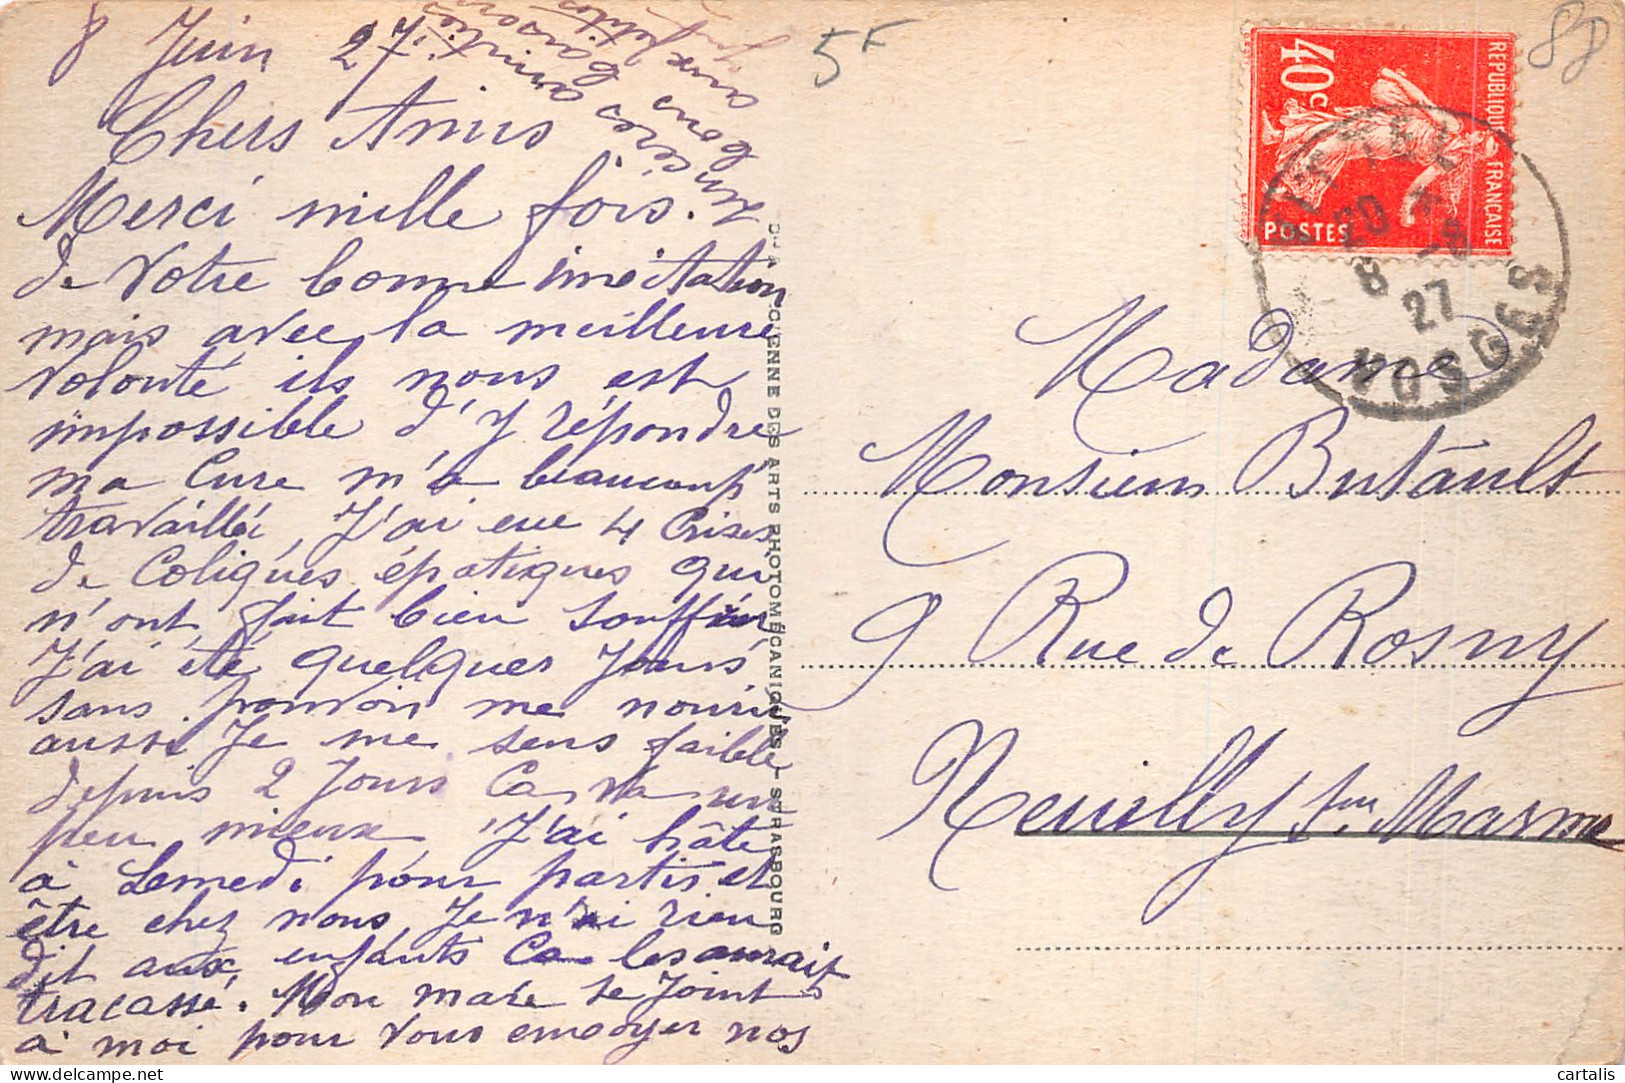 8 Juin 27
Chers Amis
Merci mille fois
de votre bonne invitation
mais avec la meilleure
volonté ils nous est
impossible d'y répondre
ma Cure m'a beaucoup
travaillé, J'ai eue 4 Crises
de Coliques épatiques qui
n'ont fait bien souffrir
J'ai été quelques Jours
sans pouvoir me nourir
aussi Je me sens faible
depuis 2 Jours Ca va un
peu mieux J'ai hâte
à Lemedi pour partir et
être chez nous Je n'ai rien
dit aux enfants Ca les aurait
tracassé. Mon mari se Joint
à moi pour vous envoyer nos
sincères amitiés
aux petites
5F
88
REPUBLIQUE FRANÇAISE
40c
POSTES
20
8 - 6
27
VOSGES
CIENNE DES ARTS PHOTOMÉCANIQUES - STRASBOURG
Madame
Monsieur Butault
9 Rue de Rosny
Neuilly sur Marne
cartalis